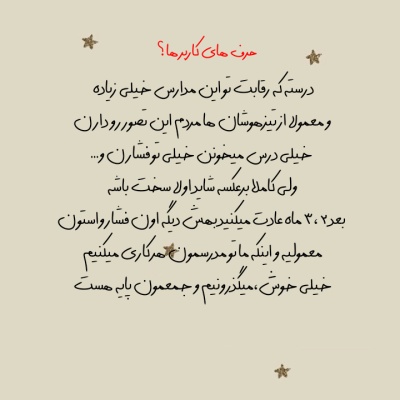 حرف های کاربرها؟
درسته که رقابت تو این مدارس خیلی زیاده
و معمولا از تیزهوشان ها مردم این تصور رو دارن
خیلی درس میخونن خیلی تو فشارن و...
ولی کاملا برعکسه شاید اولا سخت باشه
بعد ۲ ، ۳ ماه عادت میکنید بهش دیگه اون فشار واستون
معمولیه و اینکه ما تو مدرسمون هرکاری میکنیم
خیلی خوش ،میگذرونیم و جمعمون پایه هست